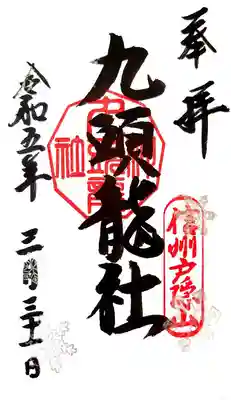 奉拝
信州戸隠山
九頭龍社
令和五年 三月三十一日